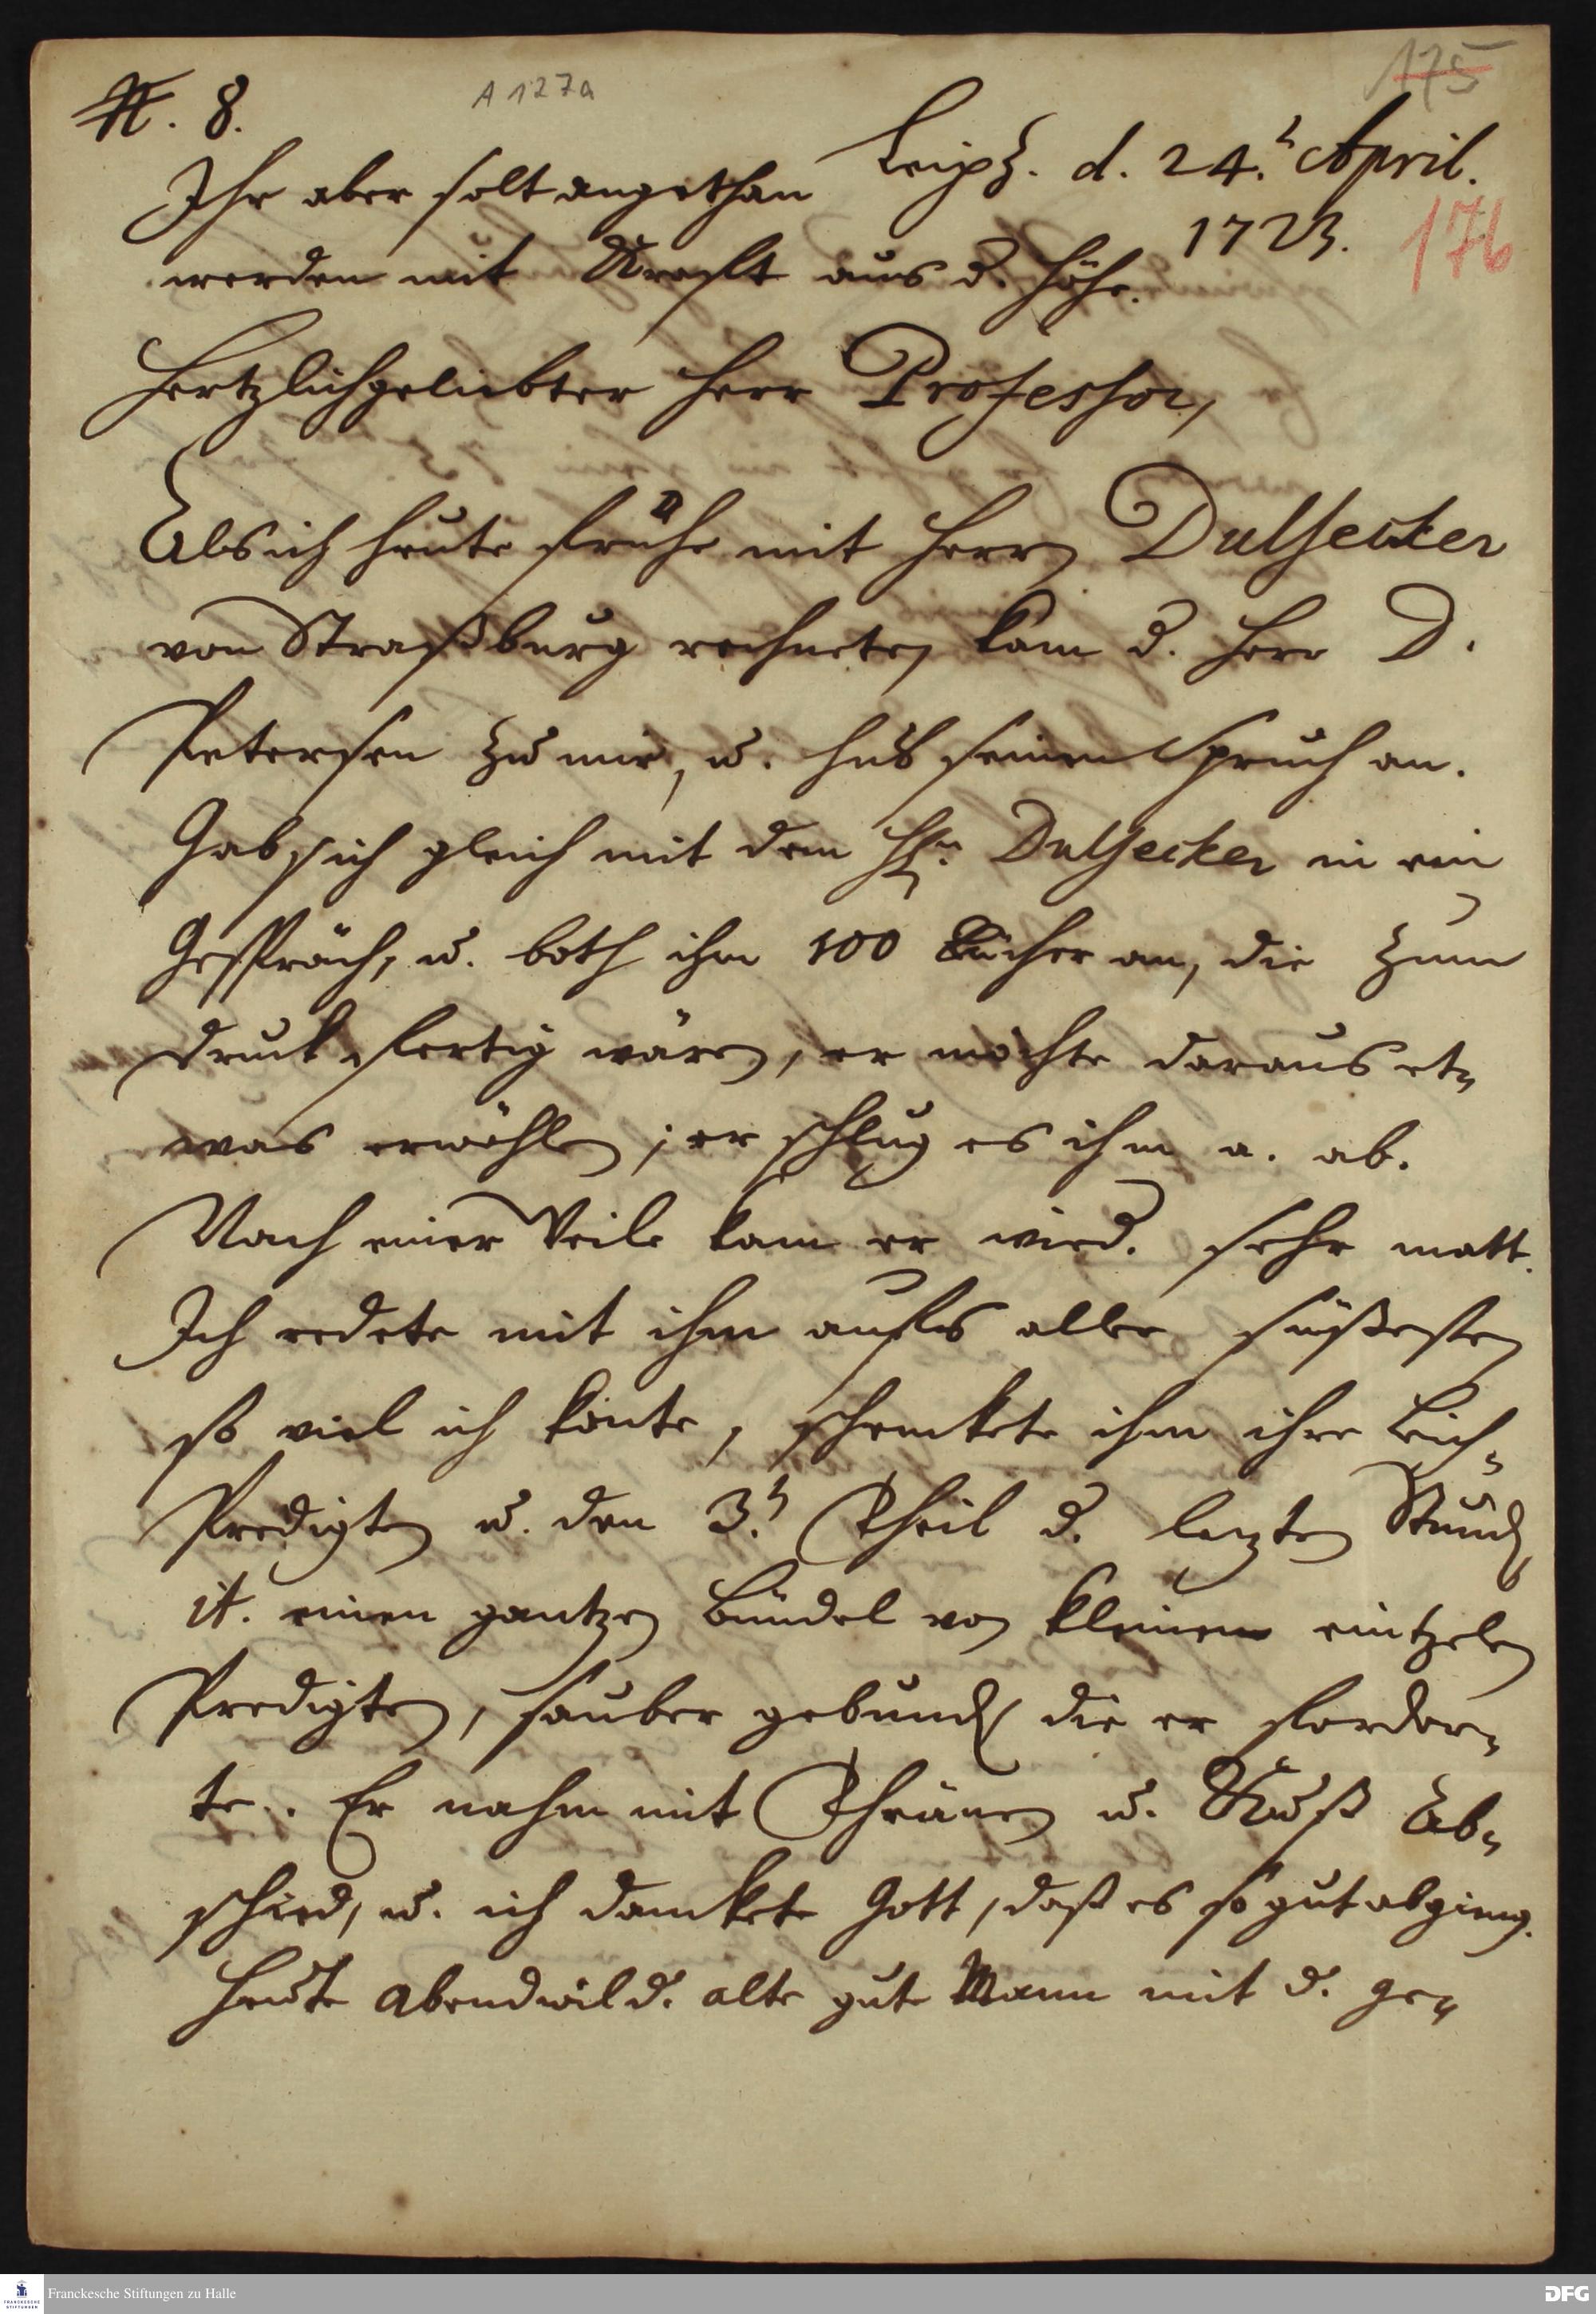 N. 8.
A 127a
175
Leipz. d. 24.t April.
1723.
176
Ihr aber solt angethan
werden mit Krafft aus d. Höhe.
Hertzlichgeliebter Herr Professor,
Als ich heute frühe mit Herrn Dulsecker
von Straßburg rechnete, kam d. Herr D.
Petersen zu mir, u. hub seinen Spruch an.
Gab sich gleich mit dem Hn. Dulsecker in ein
Gespräch, u. both ihm 100 Bücher an, die zum
druck fertig wären, er möchte daraus et-
was erwöhlen; er schlug es ihm a. ab.
Nach einer Weile kam er wied. sehr matt.
Ich redete mit ihm aufs aller süßesten
so viel ich konte, schenckete ihm ihre Leich-
Predigten u. den 3.t Theil d. letzten Stunden
it. einen gantzen Bündel von kleinen eintzelen
Predigten, sauber gebunden die er forder-
te. Er nahm mit Thränen u. Kuß Ab-
schied, u. ich danckete Gott, daß es so gut abging.
Heute Abend wil d. alte gute Mann mit d. ge-
Franckesche Stiftungen zu Halle
FRANCKESCHE STIFTUNGEN
DFG